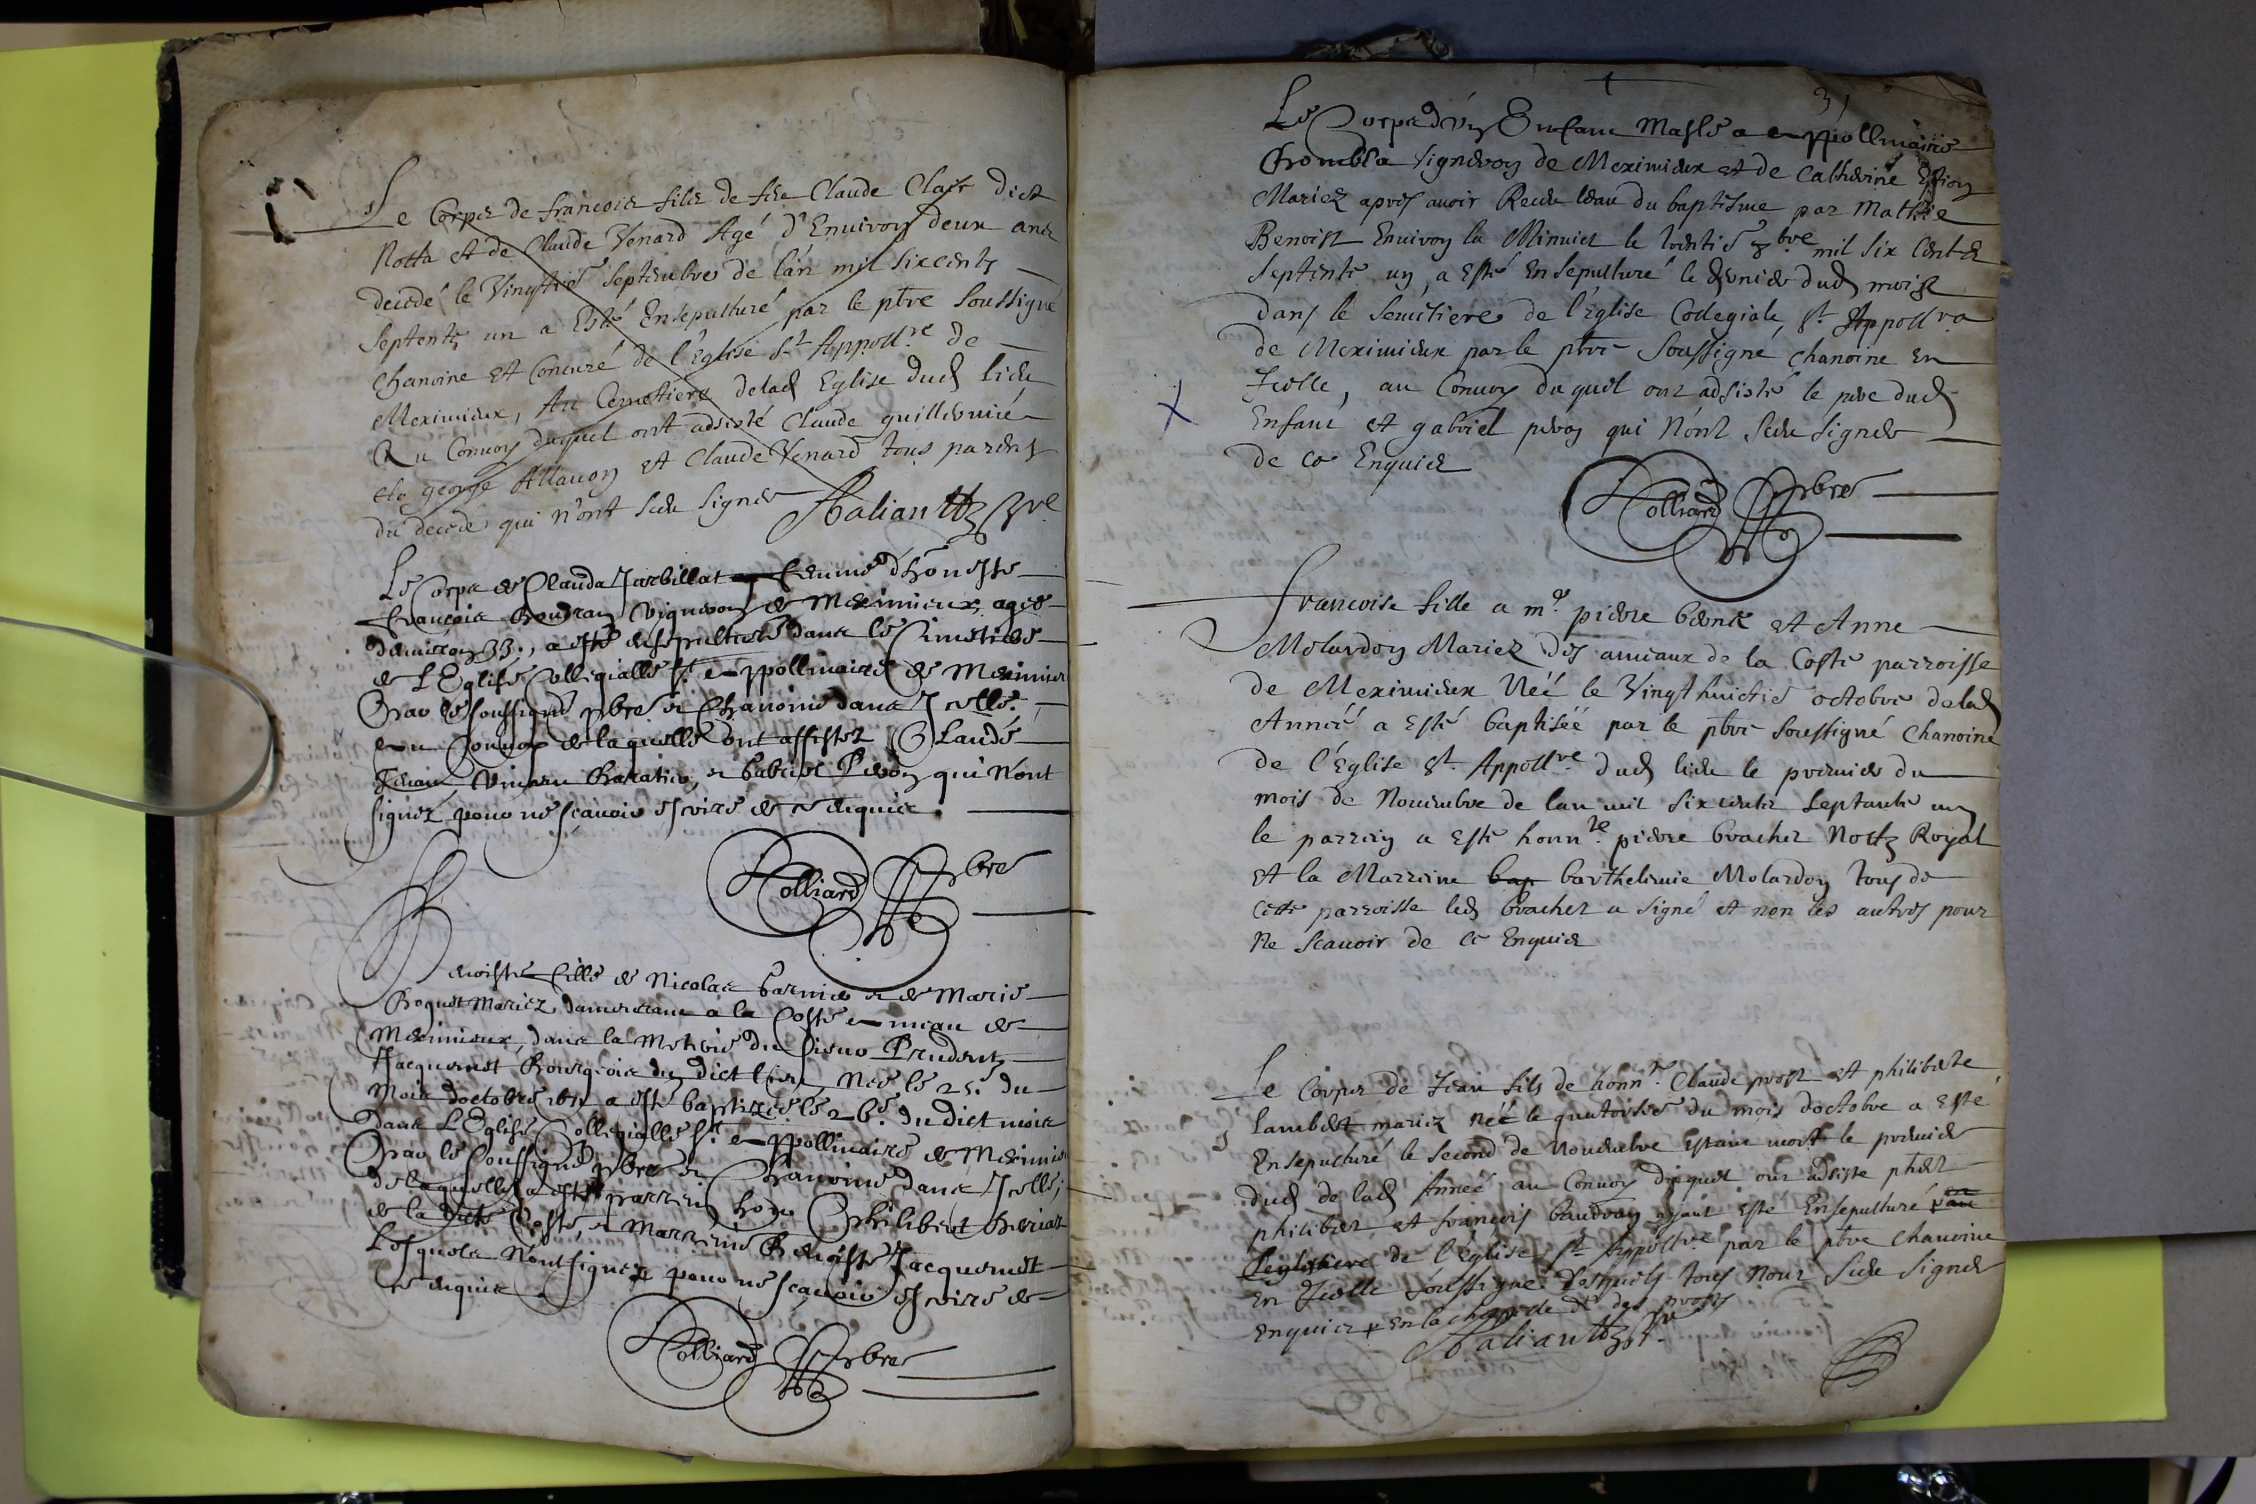 Le Corps de francois fils de feu Claude Clair dict
Notta et de Claude Venard Agé d'Enuiron deux ans
decedé le Vingtie septembre de lan mil sixcents
septente un a Esté Ensepulturé par le pbre soussigné
chanoine et Concuré de l'Eglise St Appollre de
Meximieux, Au Cemetiere delad Eglise dud lieu
Au Conuoy duquel ont adsisté Claude guillermié
george Allauon et Claude Venard tous parents
du decedé qui n'ont sceu signer
Le Corps de Clauda Jarbillat femme d'honeste
francois Boudran Vigneron de Meximieux, agée
denuiron 33., a esté ensepulturée dans le Cimetiere
de L'Eglise Collegialle St Appollinaire de Meximieu
Par le soussigné pbre et Chanoine dans Jcelle,
au Conuoy de laquelle ont assistez Claude
qui n'ont
signez pour ne scauoir escrire de ce enquis
Rolliard pbre
Benoiste fille de Nicolas Garnier et de Marie
Roquet Mariez demeurant a la Coste
Meximieux, dans la Meterie du sieur Prudent
Jacquemet Bourgeois du dict lieu Née le 25e du
Mois doctobre 1671 a esté baptizée le 26e du dict mois
Dans L'Eglise Collegialle St Appollinaire de Meximieu
Par le soussigné pbre et Chanoine dans Jcelle;
de laquelle a esté parrein hon Philibert
de la dicte Coste, et marreine Benoiste Jacquemet
Lesquels n'ont signez pour ne scauoir escrire de
ce enquis
Rolliard pbre
31
Le Corps d'un Enfant Masle a Appollinaire
Vigneron de Meximieux et de Catherine
Mariez apres auoir Receu leau du baptisme par Mathie
Benoist Enuiron la Minuict le trentie 8bre mil six Cents
septente un, a Esté Ensepulturé le dernier dud mois
dans le semitiere de l'Eglise Colegiale St Appollre
de Meximieux par le pbre soussigné chanoine en
Jcelle, au Conuoy duquel ont adsisté le pere dud
Enfant et gabriel peron qui n'ont sceu signer
de ce Enquis
Rolliard pbre
francoise fille a me pierre et Anne
Molardon Mariez des amiaux de la Coste parroisse
de Meximieux Néé le Vingthuictie octobre delad
Annéé a Esté baptiséé par le pbre soussigné chanoine
de l'Eglise St Appollre dud lieu le premier du
mois de Nouembre de lan mil sixcents septante un
le parrein a Esté honnle pierre brachet Nottre Royal
et la Marreine bap barthelemie Molardon tous de
Cette parroisse led brachet a signé et non les autres pour
Ne scauoir de ce Enquis
Le Corps de Jean fils de honnle Claude prost et philiberte
Lambert mariez néé le quatorzie du mois doctobre a Esté
Ensepulturé le second de Nouembre Estant mort le premier
dud de lad Annéé au Conuoy duquel ont adsisté
philibert et francois baudran ayant Esté Ensepulturé au
de l'église St Appollre par le pbre chanoine
en Jcelle soussigné Lesquels tous n'ont sceu signer
enquis en la chapelle des prosts